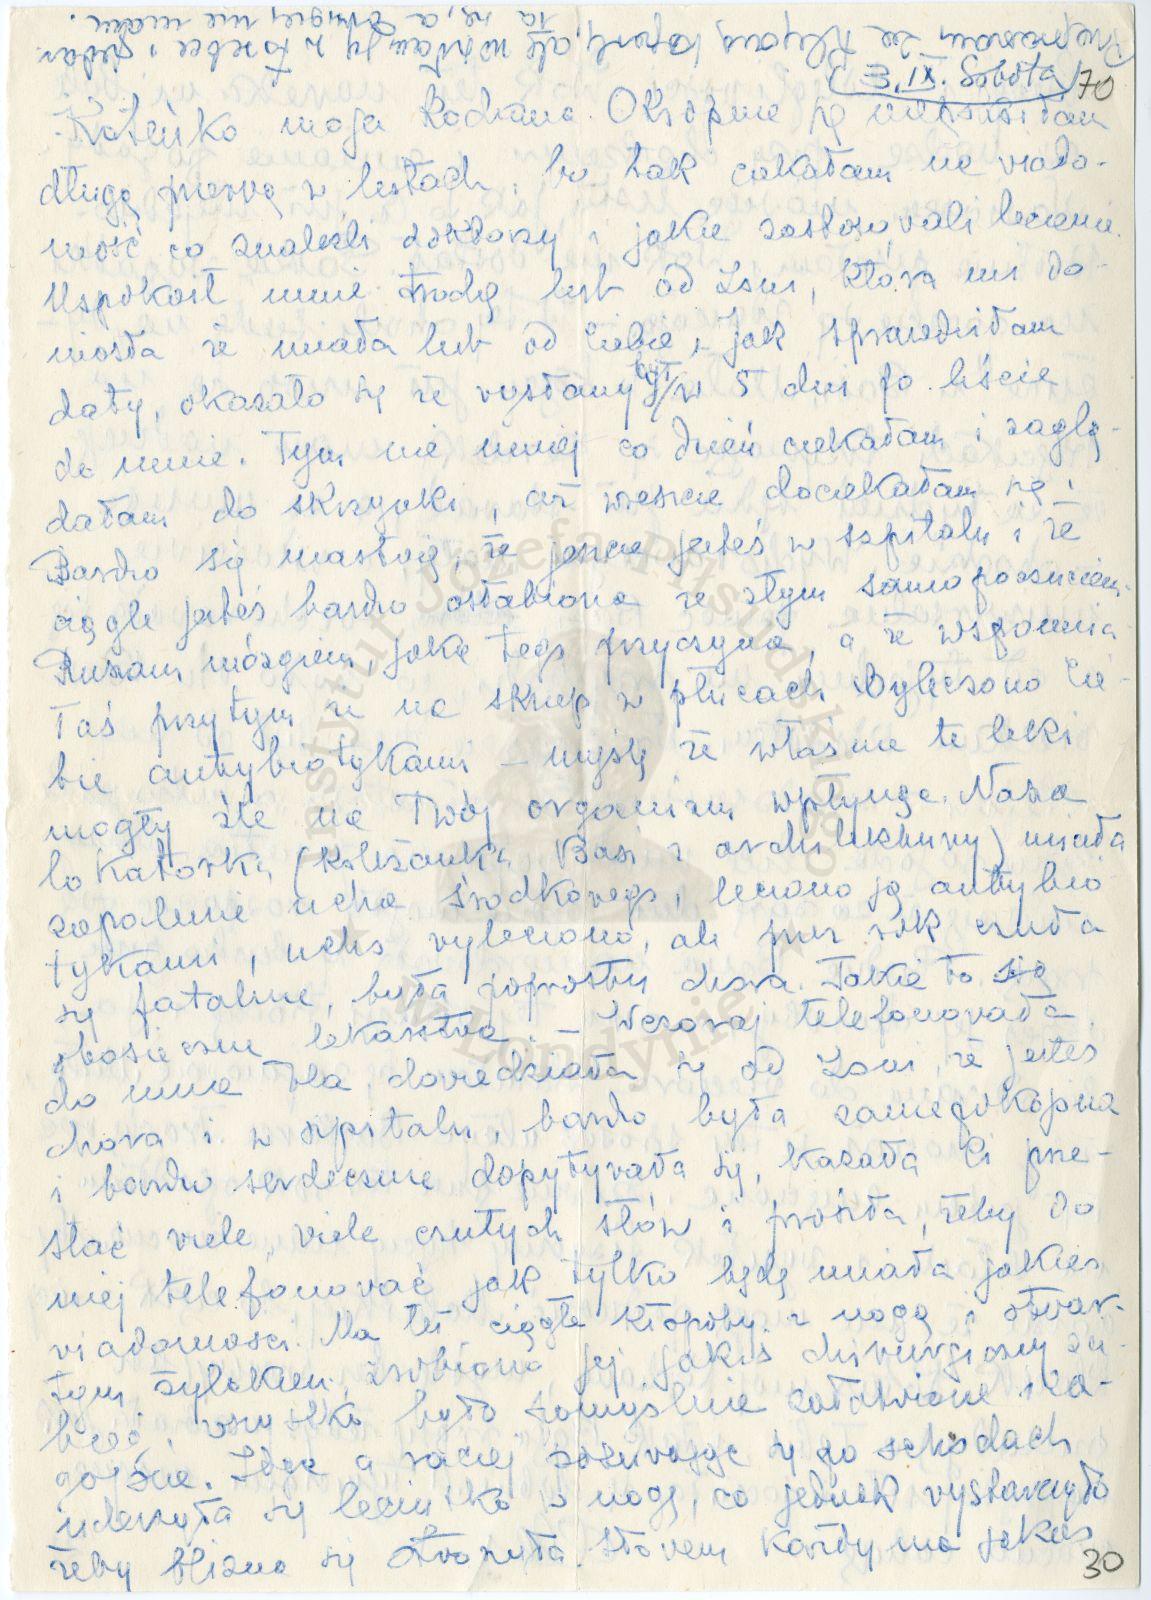 Przepraszam za
ale wzięłam ją w
się, a drugiej nie mam.
3. IX. Sobota 70
Kateńko moja Kochana. Okropnie się
długą przerwą w listach, bo tak czekałam na wiado-
mość co znaleźli doktorzy i jakie zastosowali leczenie.
Uspokoił mnie trochę list od Zosi, która mi do-
niosła że miała list od Ciebie i jak sprawdziłam
daty, okazało się że wysłany był w 5 dni po liście
do mnie. Tym nie mniej co dzień czekałam i zaglą-
dałam do skrzynki, aż wreszcie doczekałam się!
Bardzo się martwię, że jeszcze jesteś w szpitalu i że
ciągle jesteś bardzo osłabiona ze złym samopoczuciem.
Ruszam mózgiem, jaka tego przyczyna, a że wspomnia-
łaś przy tym że na skrzep w płucach wyleczono Cie-
bie antybiotykami – myślę że właśnie te leki
mogły źle na Twój organizm wpłynąć. Nasza
lokatorka (koleżanka Basi z architektury) miała
zapalenie ucha środkowego, leczono ją antybio-
tykami, ucho wyleczono, ale przez rok czuła
się fatalnie, była poprostu chora. Takie to są
obosieczne lekarstwa. – Wczoraj telefonowała
do mnie dowiedziała się od Zosi, że jesteś
chora i w szpitalu, bardzo była zaniepokojona
i bardzo serdecznie dopytywała się, kazała Ci prze-
słać wiele, wiele czułych słów i prosiła, żeby do
niej telefonować jak tylko będę miała jakieś
wiadomości. Ma też ciągle kłopoty z nogą i otwar-
tym żylakiem, zrobiono jej jakiś chirurgiczny za-
bieg, wszystko było pomyślnie załatwione i za-
gojone. Idąc a raczej zsuwając się po schodach
uderzyła się leciutko w nogę, co jednak wystarczyło
żeby blizna się otworzyła. Słowem każdy ma jakieś
30
Instytut Józefa Piłsudskiego
w Londynie